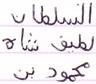 السلطان
لطيف شاه
محمود بن